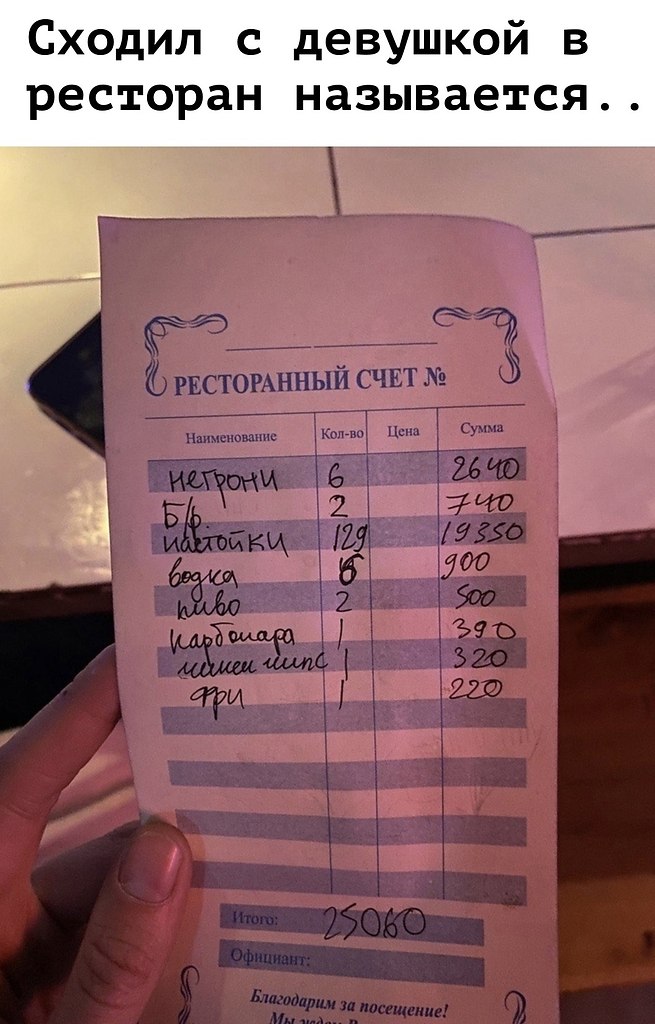 Сходил с девушкой в
ресторан называется..
РЕСТОРАННЫЙ СЧЕТ №
Наименование Кол-во Цена Сумма
негрони 6 2640
Б/р. 2 740
настойки 129 19350
водка 6 900
пиво 2 500
карбонара 1 390
чикен чипс 1 320
фри 1 220
Итого: 25060
Официант:
Благодарим за посещение!
Мы ждем